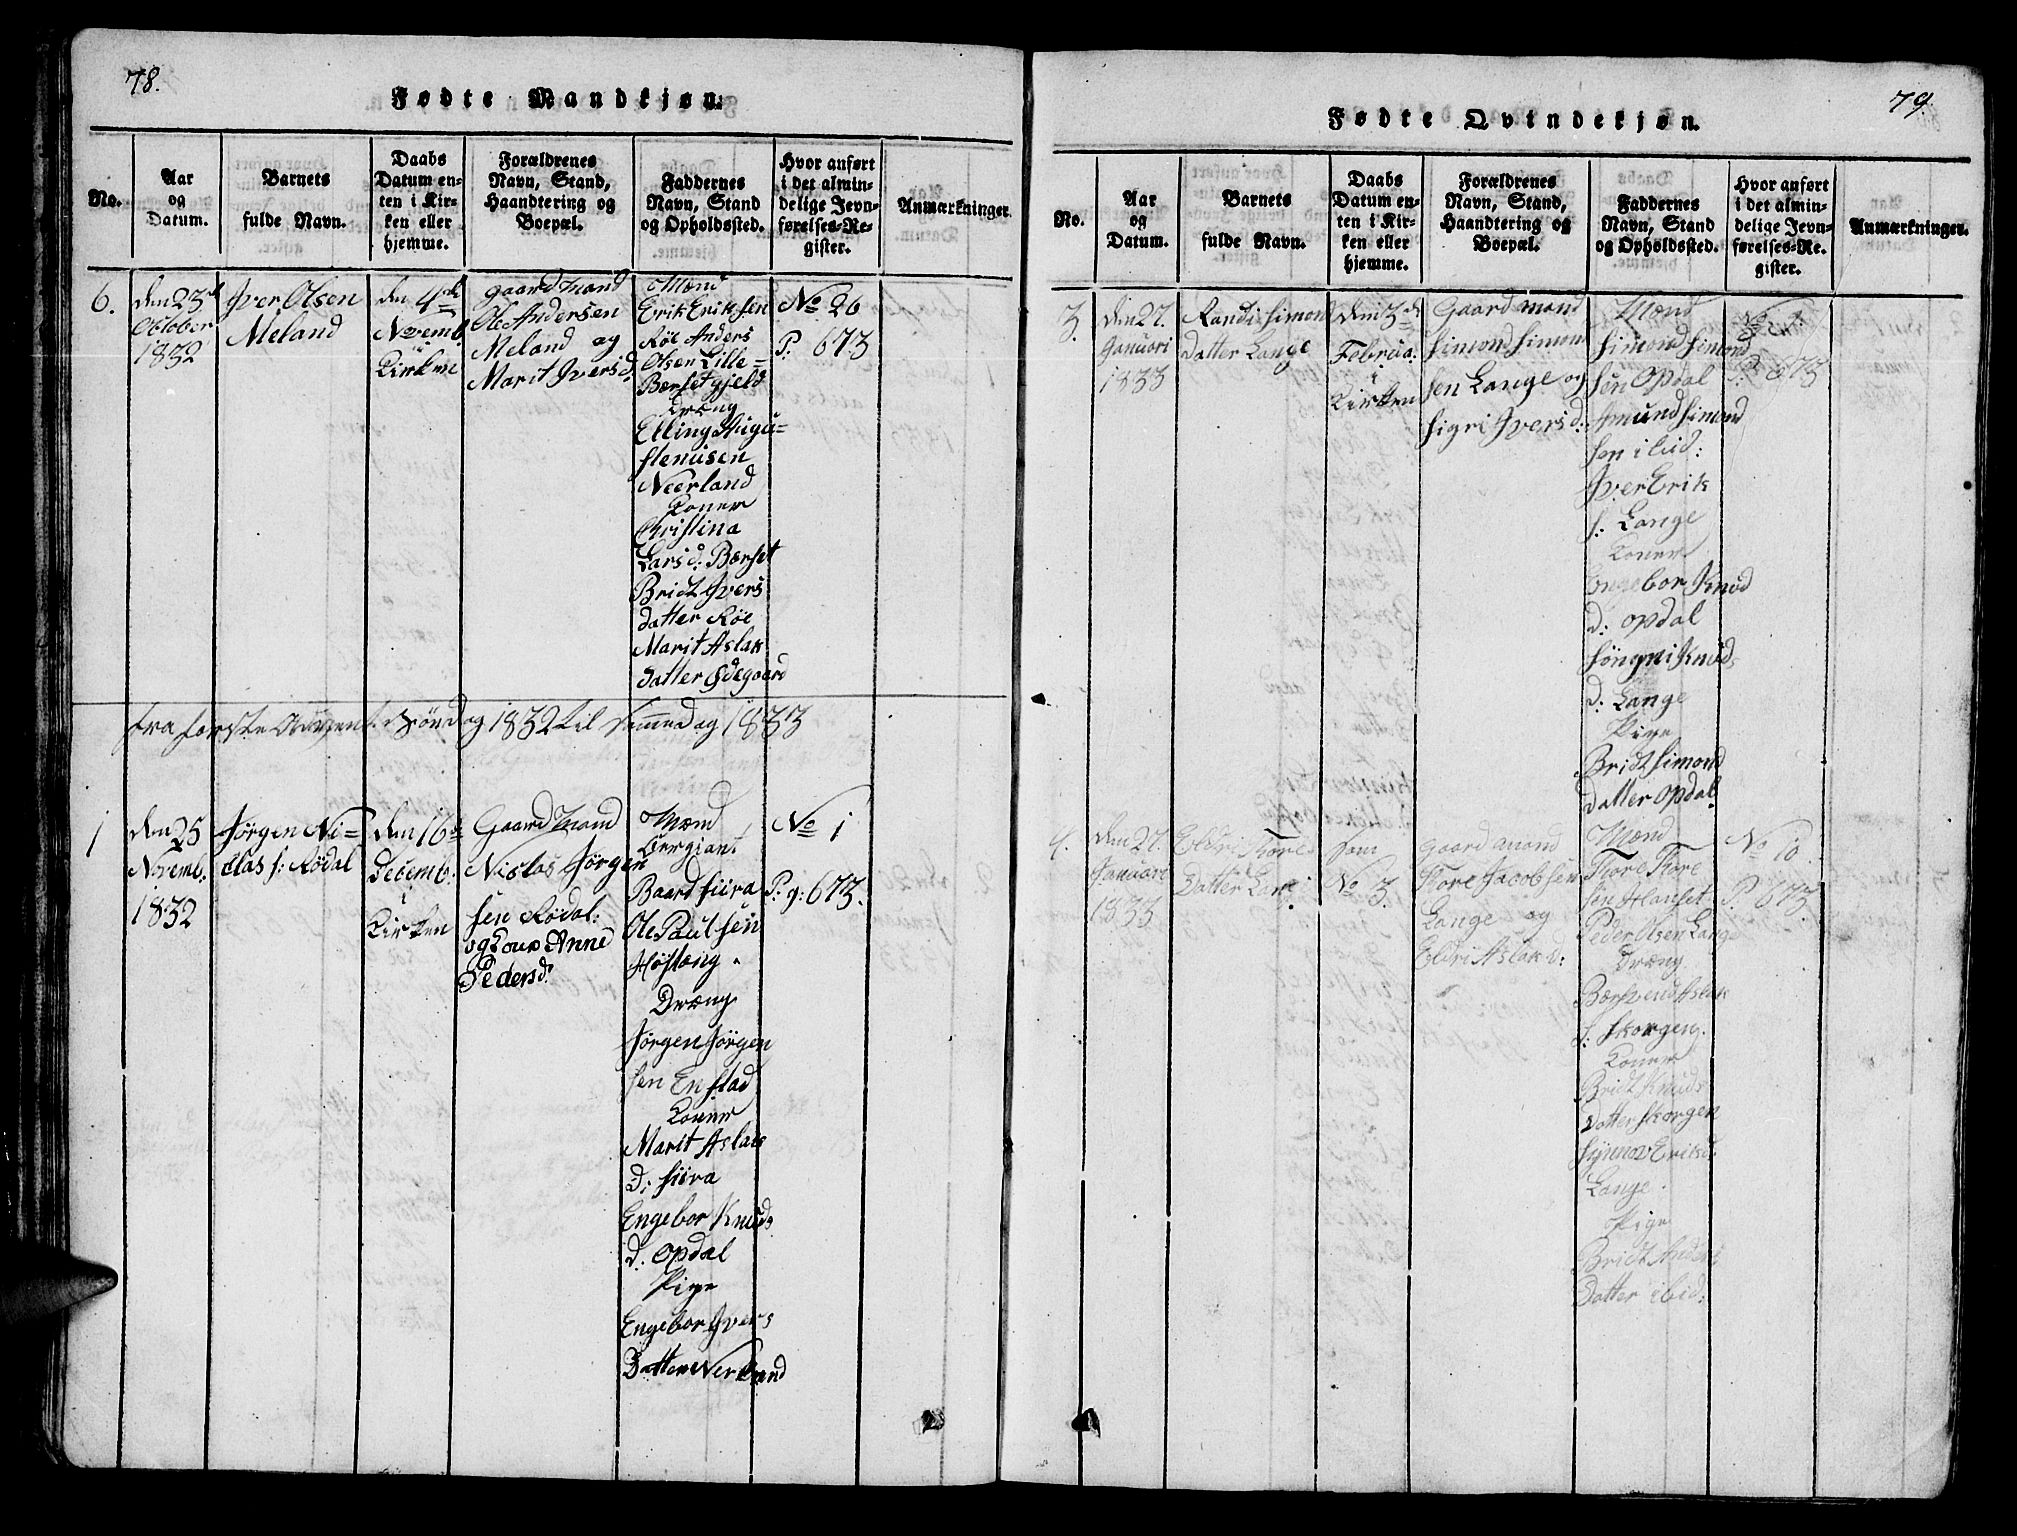 78.
Fødte Mandkjøn.
No.
Aar
og
Datum.
Barnets
fulde Navn.
Daabs
Datum en-
ten i Kir-
ken eller
hjemme.
Forældrenes
Navn, Stand,
Haandtering og
Boepæl.
Faddernes
Navn, Stand
og Opholdssted.
Hvor anført
i det almin-
delige Jevn-
førelses-Re-
gister.
Anmærkninger.
6.
den 23de
Oktober
1832
Iver Olsen
Meland
den 4de
Novemb.
i
Kirken
Gaardmand
Ole Andersen
Meland og
Marit Iversd.
Mænd
Erik Eriksen
Røe Anders
Olsen Lille=
Bærsetgjeld
Dræng
Elling Augu=
stenusen
Neerland
Koner
Christina
Larsd: Bærset
Bridt Ivers
datter Røe
Marit Aslak
datter Ødegaard
No 26
P. 673
fra første Advent Søndag 1832 til samedag 1833
1
den 25
Novemb:
1832
Jørgen Ni=
clas s: Rødal
den 16de
Decemb:
i
Kirken
Gaardmand
Niclas Jørgen
sen Rødal:
og Kone Anne
Pedersd.
Mænd
Baard Siira
Ole Paulsen
Dræng
Jørgen Jørgen
sen Enstad
Koner
Marit Aslak
D: Siira
Engebor Knuds
d. Opdal
Pige
Engebor Ivers
Datter Nerland
No 1
P: g: 673.
79.
Fødte Qvindekjøn.
No.
Aar
og
Datum.
Barnets
fulde Navn.
Daabs
Datum en-
ten i Kir-
ken eller
hjemme.
Forældrenes
Navn, Stand,
Haandtering og
Boepæl.
Faddernes
Navn, Stand
og Opholdssted.
Hvor anført
i det almin-
delige Jevn-
førelses-Re-
gister.
Anmærkninger.
3.
den 27.
Januari
1833
Randi Simon
datter Lange
den 3de
Februa:
i
Kirken
Gaardmand
Simond Simon
sen Lange og
Sigri Iversd:
Mænd
Simond Simond
sen Opdal
Amund Simond
sen ibid:
Iver Erik
s: Lange
Koner
Engebor Knud
d: Opdal
Søngni Knud
d: Lange
Pige
Bridt Simond
datter Opdal
P: 673
4.
den 27.
Januari
1833
Eldri Tore
Datter Lange
som
No 3
Gaardmand
Tore Jacobsen
Lange og
Eldri Aslakd:
Mænd
Tore Tore
sen Hanset
Peder Olsen Lange
Dræng
Aslak
s. Skorgen.
Koner
Bridt Knuds
Datter Skorgen
Synnov Eriksd:
Lange.
Pige
Bridt Anders
Datter ibid:
No 10.
P. 673.